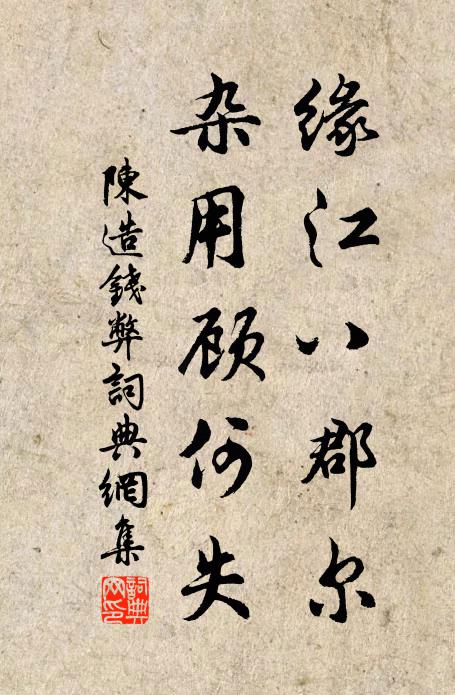 缘江八郡尔
杂用顾何失
陳造錢弊詞典網集
詞典网印